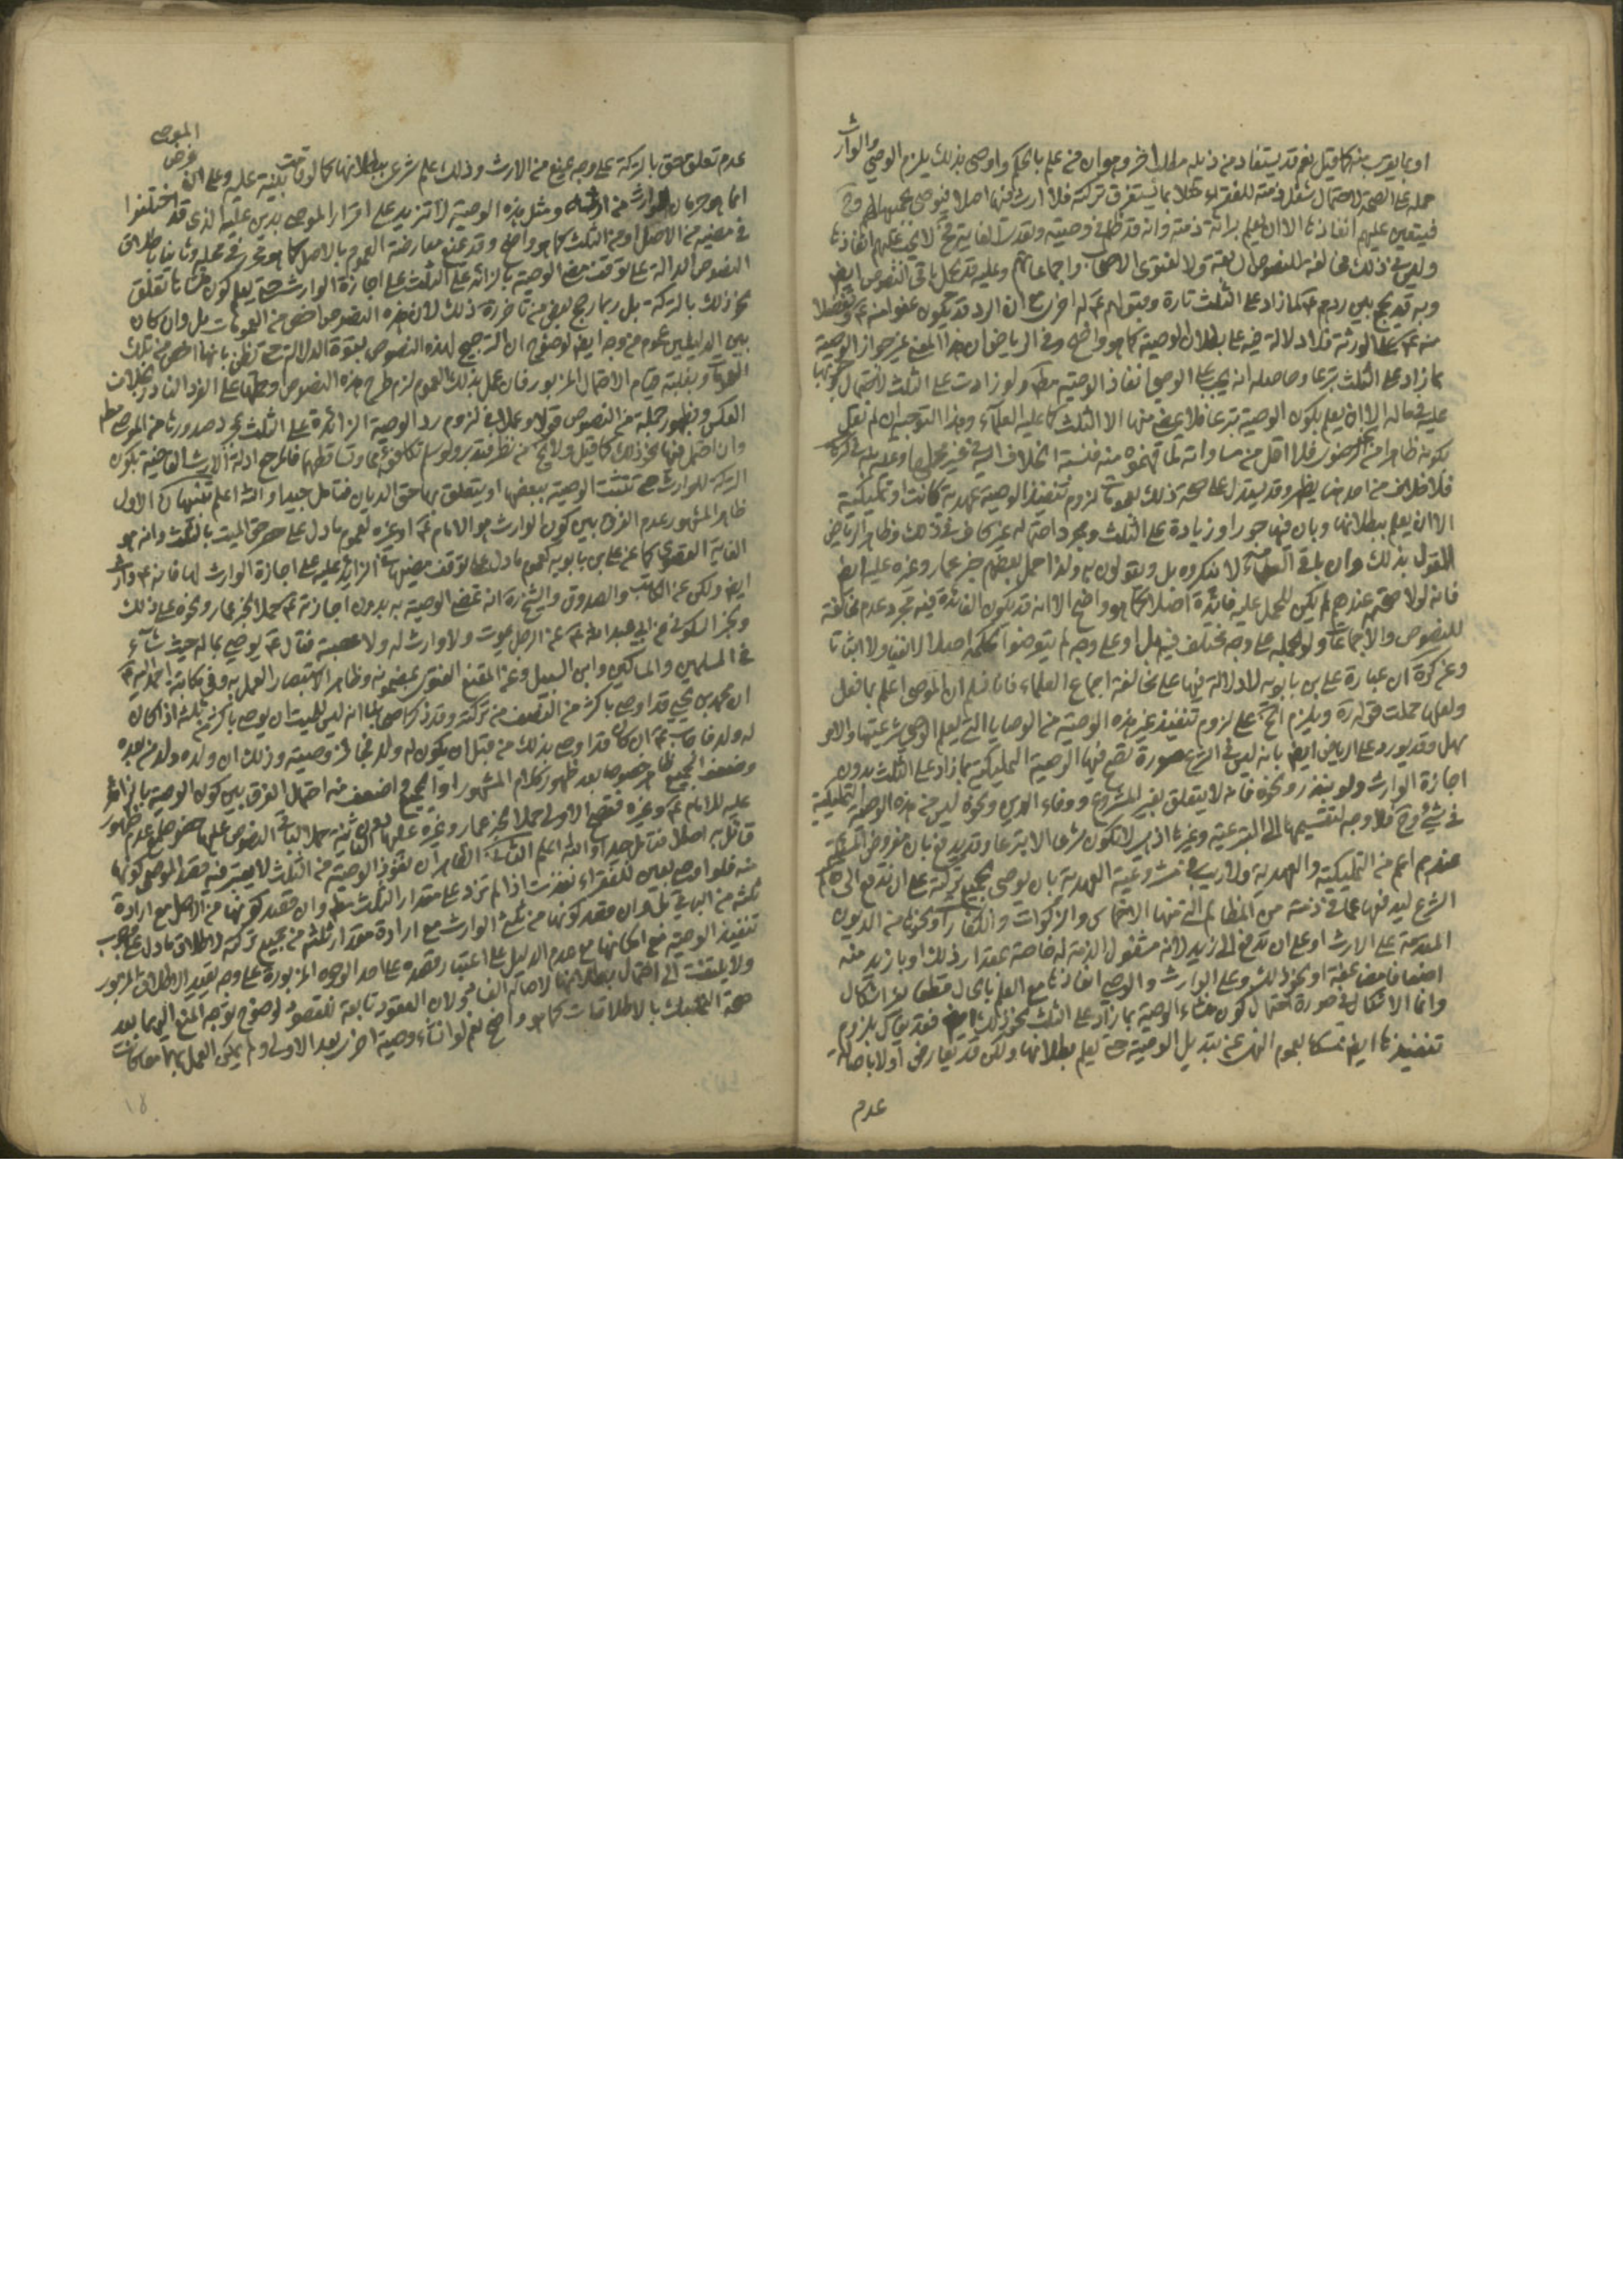 او بما يقرب منه كما قيل نعم قد يستفاد من ذيله مطلب اخر وهو ان من علم بالحكم واوصى بذلك يلزم الوصي والوارث
حمله على الصحة لاحتمال شغل ذمته للفقراء مثلا بما يستغرق تركته فلا ارث فيها اصلا فيوصي بجميعها لهم وح
فيتعين عليهم انفاذها الا ان يعلم برائة ذمته وانه قد ظلم في وصيته وتعدى ح لا يجب عليهم انفاذها
وليس في ذلك مخالفة للنصوص السابقة ولا لفتوى الاصحاب واجماعاتهم وعليه قد يحمل باقي النصوص ايضا
وبه قد يجمع بين ردهم ع لما زاد على الثلث تارة وقبولهم ع له اخرى مع ان الرد قد يكون عفوا منه ع وتفضلا
منه ع على الورثة فلا دلالة فيه على بطلان الوصية كما هو واضح وفي الرياض ان هذا المعنى غير جواز الوصية
بما زاد على الثلث تبرعا وحاصله انه يجب على الوصي انفاذ الوصية مط ولو زادت على الثلث لاحتمال كونها
عليه في ماله الا ان يعلم بكون الوصية تبرعا فلا يمضي منها الا الثلث كما عليه العلماء وهذا التوجيه ان لم نقل
بكونه ظاهرا من الرضوي فلا اقل من مساواته لما فهموه منه فنسبة الخلاف اليه في غير محلها وعليه
فلا خلاف من احد هنا يظهر وقد يستدل على صحة ذلك بعمومات لزوم تنفيذ الوصية عهدية كانت او تمليكية
الا ان يعلم ببطلانها وبان فيها جورا وزيادة على الثلث ومجرد احتماله غير كاف في ذلك وظاهر الرياض
القول بذلك وان باقي العلماء لا ينكروه بل ويقولون به ولذا حمل بعضهم خبر عمار وغيره عليه ايضا
فانه لولا صحته عندهم لم يكن للحمل عليه فائدة اصلا كما هو واضح الا انه قد يكون الفائدة فيه مجرد عدم مخالفته
للنصوص والاجماعات ولو بحمله على وجه مختلف فيه بل او على وجه لم يتعرضوا لحكمه اصلا لا نفيا ولا اثباتا
وعن كرة ان عبارة علي بن بابويه لا دلالة فيها على مخالفة اجماع العلماء فانا نسلم ان الموصي اعلم بما فعل
ولعلها حملت قوله ره ويلزم الخ على لزوم تنفيذ غير هذه الوصية من الوصايا التي يعلم الوصي شرعيتها والامر
سهل وقد يورد على الرياض ايضا بانه ليس في الشرع صورة تصح فيها الوصية التمليكية بما زاد على الثلث بدون
اجازة الوارث ولو بنذر ونحوه فانه لا يتعلق بغير المشروع ووفاء الدين ونحوه ليس من هذه الوصية التمليكية
في شئ وح فلا وجه لتقسيمها الى التبرعية وغيرها اذ هي لا تكون شرعا الا تبرعا وقد يدفع بان مفروض المسئلة
عندهم اعم من التمليكية والعهدية ولا ريب في مشروعية العهدية بان يوصي بجميع تركته على ان تدفع الى حاكم
الشرع ليد فيها عما في ذمته من المظالم التي منها الاخماس والزكوات والكفارات ونحوها من الديون
المقدمة على الارث او على ان تدفع الى زيد لانه مشغول الذمة له خاصة بمقدار ذلك او بازيد منه
اضعافا مضاعفة او نحو ذلك وعلى الوارث والوصي انفاذها مع العلم بالحال قطعا بلا اشكال
وانما الاشكال في صورة احتمال كون منشاء الوصية بما زاد على الثلث نحو ذلك ايضا فقد يقال بلزوم
تنفيذها ايضا تمسكا بعموم النهي عن تبديل الوصية حتى يعلم بطلانها ولكن قد يعارض اولا باصالة
عدم
الموصي
فرض
عدم تعلق حق بالتركة على وجه يمنع من الارث وذلك علم شرعي ببطلانها كما لو قامت بينة عليه وعلى ان
انما هو حرمان الوارث من ارثه ومثل هذه الوصية لا تزيد على اقرار الموصي بدين عليه الذي قد اختلفوا
في مضيه من الاصل او من الثلث كما هو واضح وقد يمنع معارضة العموم بالاصل كما هو محرر في محله وثانيا باطلاق
النصوص الدالة على توقف مضي الوصية بالزائد على الثلث على اجازة الوارث حتى يعلم كون منشأها تعلق
نحو ذلك بالتركة بل ربما رجح بعض متأخرة ذلك لان هذه النصوص اخص من العمومات بل وان كان
بين الدليلين عموم من وجه ايضا لوضوح ان الترجيح لهذه النصوص بقوة الدلالة حتى تظن بانها اخص من تلك
العمومات وبغلبة قيام الاحتمال المزبور فان عمل بذلك العموم لزم طرح هذه النصوص وحملها على الفرد النادر بخلاف
العكس وبظهور جملة من النصوص قولا وعملا في لزوم رد الوصية الزائدة على الثلث بمجرد صدورها من الموصي مط
وان احتمل فيها نحو ذلك كما قيل ولا يخ من نظر فتدبر ولو سلم تكافؤهما وتساقطهما فالمرجع ادلة الارث القاضية بكون
التركة للوارث حتى تثبت الوصية ببعضها او يتعلق بها حق الديان فتامل جيدا والله اعلم تنبيهات الاول
ظاهر المشهور عدم الفرق بين كون الوارث هو الامام ع او غيره لعموم ما دل على حصر حق الميت بالثلث وانه هو
الغاية القصوى كما عن علي بن بابويه لعموم ما دل على توقف مضيها في الزائد عليه على اجازة الوارث لها فانه ع وارث
ايضا ولكن عن الكاتب والصدوق والشيخ ره انه تمضي الوصية به بدون اجازته ع حملا لخبر عمار ونحوه على ذلك
وبخبر السكوني عن ابي عبد الله ع عن الرجل يموت ولا وارث له ولا عصبة فقال ع يوصي بماله حيث شاء
في المسلمين والمساكين وابن السبيل وعن المقنع الفتوى بمضمونه وظاهر الاستبصار العمل به وفي مكاتبة
ان محمد بن يحيى قد اوصى باكثر من النصف من تركته وقد ذكر اصحابنا انه ليس للميت ان يوصي باكثر من ثلثه اذا كان
له ولد فاجاب ع ان كان قد اوصى بذلك من قبل ان يكون له ولد فجائز وصيته وذلك ان ولده ولد من بعده
وضعف الجميع ظاهر خصوصا بعد ظهور كلام المشهور او الجميع في واضعف منه احتمال الفرق بين كون الوصية بالزائد
عليه للامام ع وغيره فتصح الاولى حملا لخبر عمار وغيره عليها دون الثانية حملا لباقي النصوص عليها خصوصا مع عدم ظهور
قائل به اصلا فتامل جيدا والله اعلم الثاني الظاهر ان نفوذ الوصية من الثلث لا يعتبر فيه قصد الموصي كونها
منه فلو اوصى بعين للفقراء نفذت اذا لم تزد على مقدار الثلث مط وان قصد كونها من الاصل مع ارادة
ثلثه من الباقي بل وان قصد كونها من ثلثي الوارث مع ارادة مقدار ثلثه من جميع تركته لاطلاق ما دل على وجوب
تنفيذ الوصية مع امكانها مع عدم الدليل على اعتبار قصده على احد الوجوه المزبورة على وجه يقيد الاطلاق المزبور
ولا يلتفت الى احتمال بطلانها لاصالة الفساد ولان العقود تابعة للقصود لوضوح توجه المنع اليهما بعد
صحة التمسك بالاطلاقات كما هو واضح نعم لو انشاء وصية اخرى بعد الاولى ولم يمكن العمل بهما معا كانت